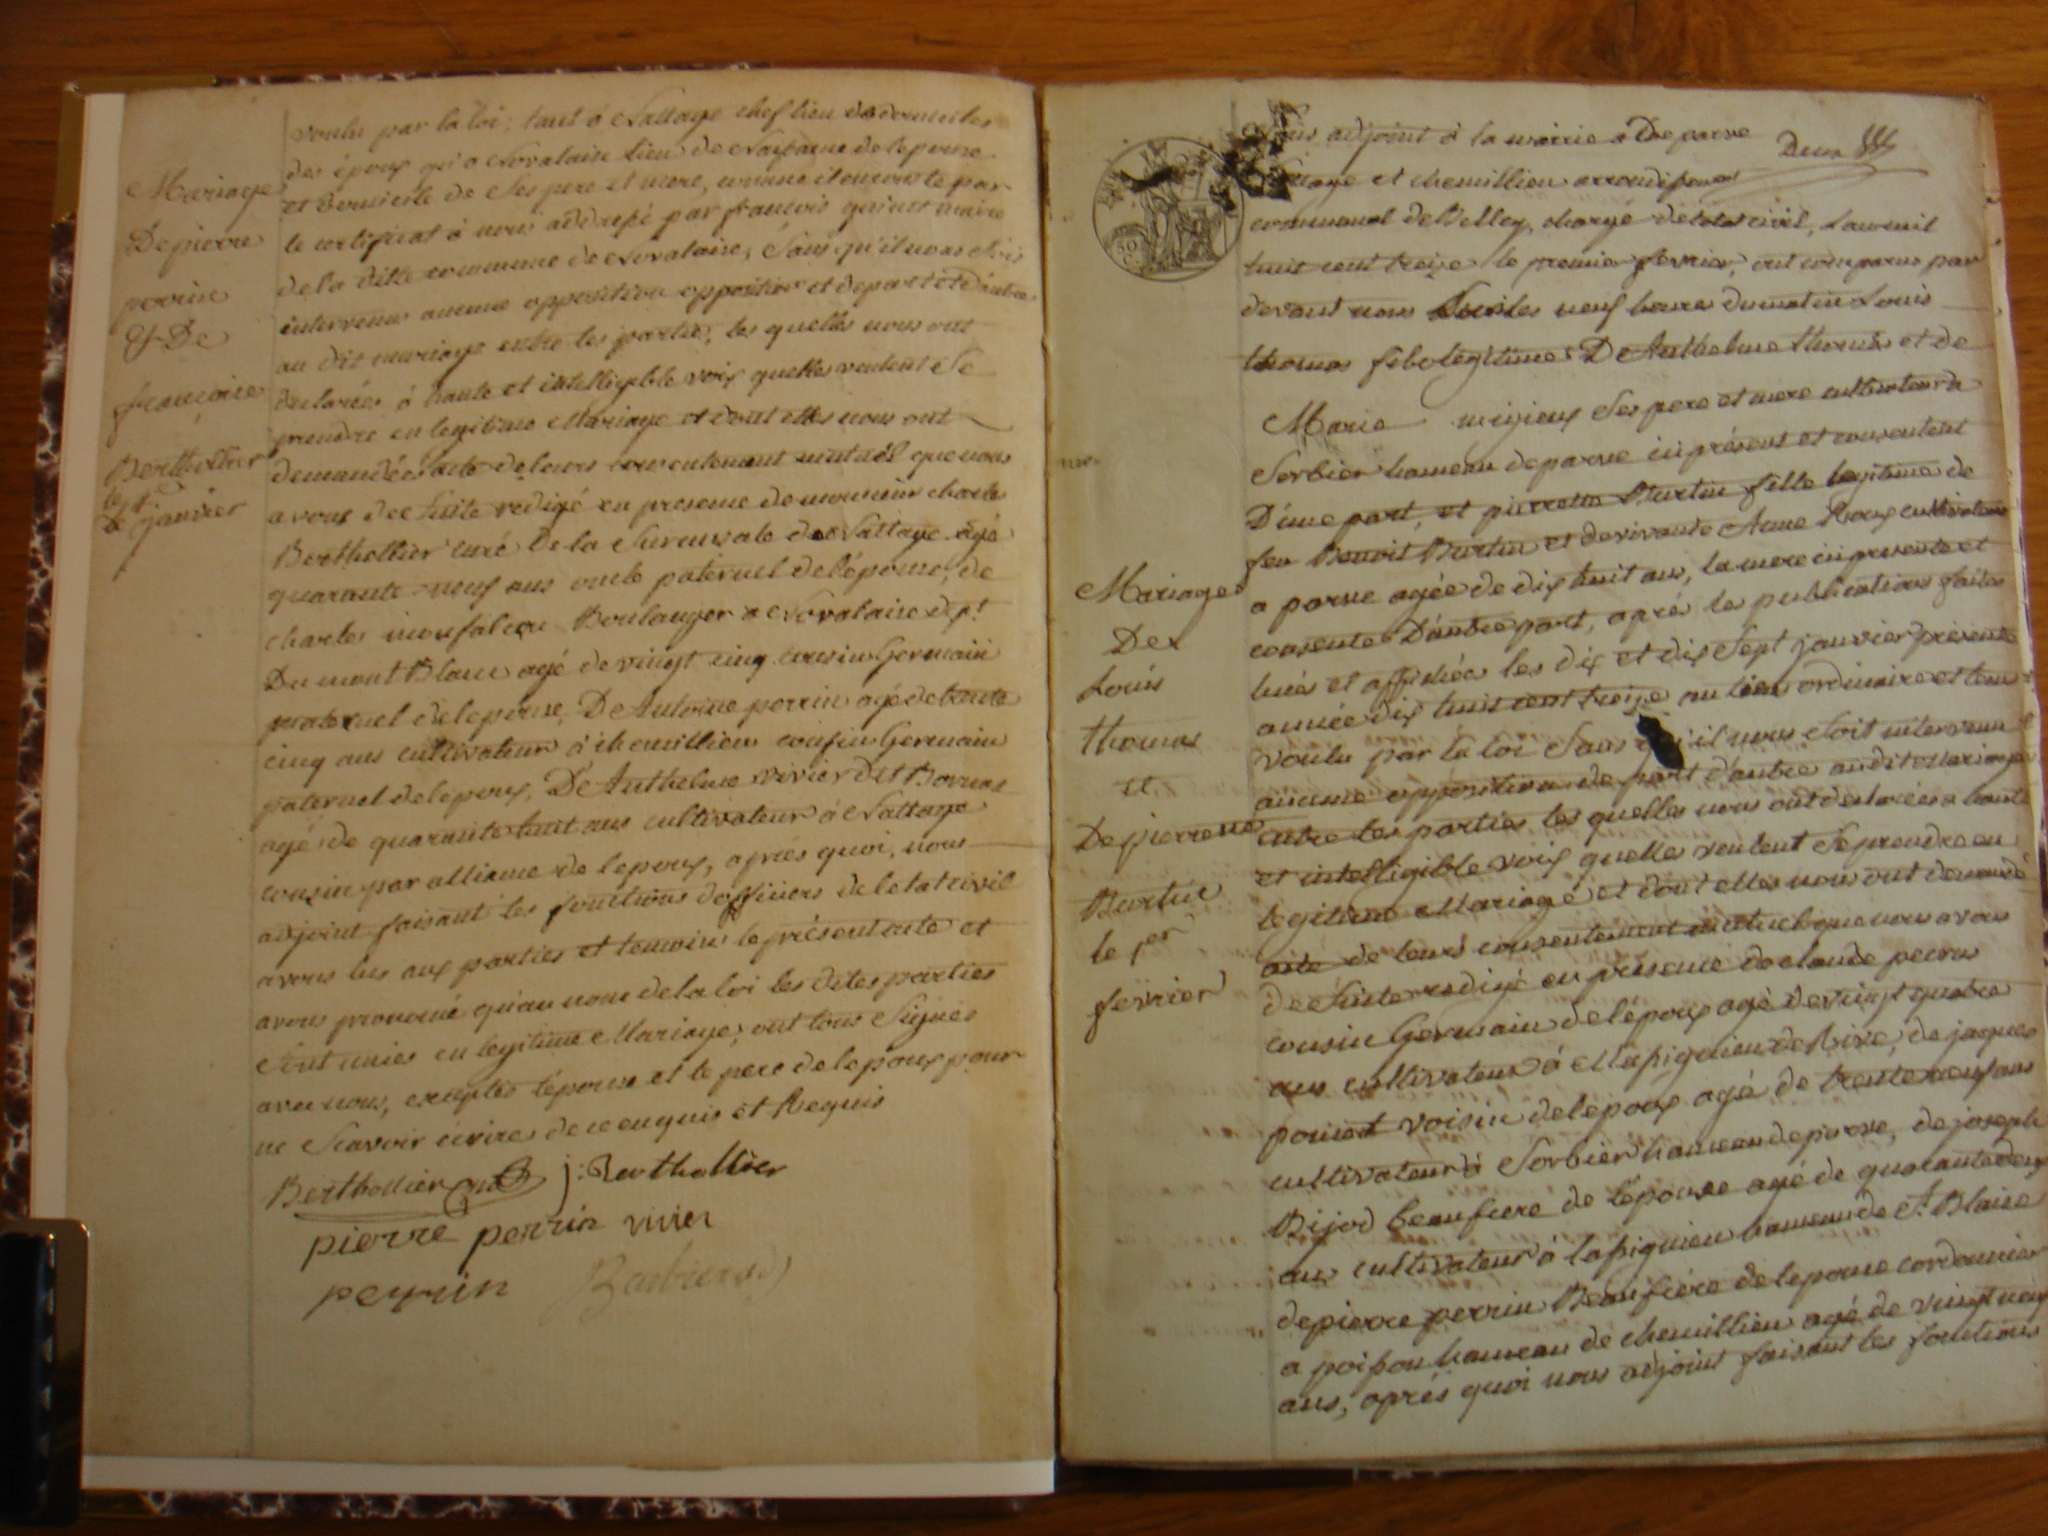 Mariage
De pierre
perrin
& De
françoise
Berthollier
le
de janvier
voulu par la loi, tant à Nattage chef lieu de domiciles
des époux qu'a Novalaise lieu de naissance de lepouse
et domicile de ses pere et mere, comme il conste par
le certificat à nous addressé par francois maire
de la ditte commune de Novalaise, sans qu'il nous soit
intervenue aucune opposition opposition et depart et d'autre
au dit mariage entre les parties, les quelles nous ont
declarées à haute et intelligible voix quelles veulent Se
prendre en legitime Mariage et dont elles nous ont
demandées acte de leurs consentement mutuel que nous
avons de suite redigé en presence de monsieur charles
Berthollier curé de la Succursale de Nattage agé
quarante neuf ans oncle paternel de l'épouse, de
charles monfalcon Boulanger a Novalaise dept
Du mont Blanc agé de vingt cinq cousin Germain
maternel de lepouse, De Antoine perrin agé de trente
cinq ans cultivateur à chemillieu cousin Germain
paternel de lepoux, De Anthelme vivier dit
agé de quarante huit ans cultivateur à Nattage
cousin par alliance de lepoux, après quoi, nous
adjoint faisant les fonctions dofficiers de letat civil
avons lus aux parties et temoins le présent acte et
avons prononcé qu'au nom de la loi les dites parties
Sont unies en legitime Mariage, ont tous Signés
avec nous, exceptés l'épouse et le pere de lepoux pour
ne Scavoir écrire de ce enquis et Requis
Berthollier curé j: Berthollier
pierre perrin vivier
peyrin
Deux
Nous adjoint à la mairie de parve
Nattage et chemillieu arrondissement
communal de Belley, chargé de letat civil, Lan mil
huit cent treize le premier fevrier, ont comparus par
devant nous Sur les neuf heure du matin Louis
thomas fils legitime De Anthelme thomas et de
Marie migieux Ses pere et mere cultivateur à
Sorbier hameau de parve ici présent et consentent
D'une part, et pierrette Burtin fille legitime de
feu Benoit Burtin et de vivante Anne Roux cultivateurs
a parve agée de dix huit ans, la mere ici presente et
consente D'autre part, après les publications faites
lués et affichées les dix et dix Sept janvier présente
année dix huit cent treize au lieu ordinaire et tems
voulu par la loi Sans qu'il nous Soit intervenu
aucune opposition de part d'autre au dit Mariage
entre les parties les quelles nous ont declarées a haute
et intelligible voix quelles veulent Se prendre en
legitime Mariage et dont elles nous ont demandé
acte de leurs consentement mutuel que nous avons
de Suite redigé en presence de claude perrin
cousin Germain de lépoux agé de vingt quatre
ans cultivateur à Massignieu de Rive, de jaques
voisin de lepoux agé de trente neuf ans
cultivateur à Sorbier hameau de parve, de joseph
Bijod beaufrere de lépouse agé de quarante deux
ans cultivateur à hameau de St Blaise
de pierre perrin Beaufrére de lepouse cordonnier
a poisson hameau de chemillieu agé de vingt neuf
ans, après quoi nous adjoint faisant les fonctions
Mariage
De
Louis
thomas
et
De pierrette
Burtin
le 1er
fevrier